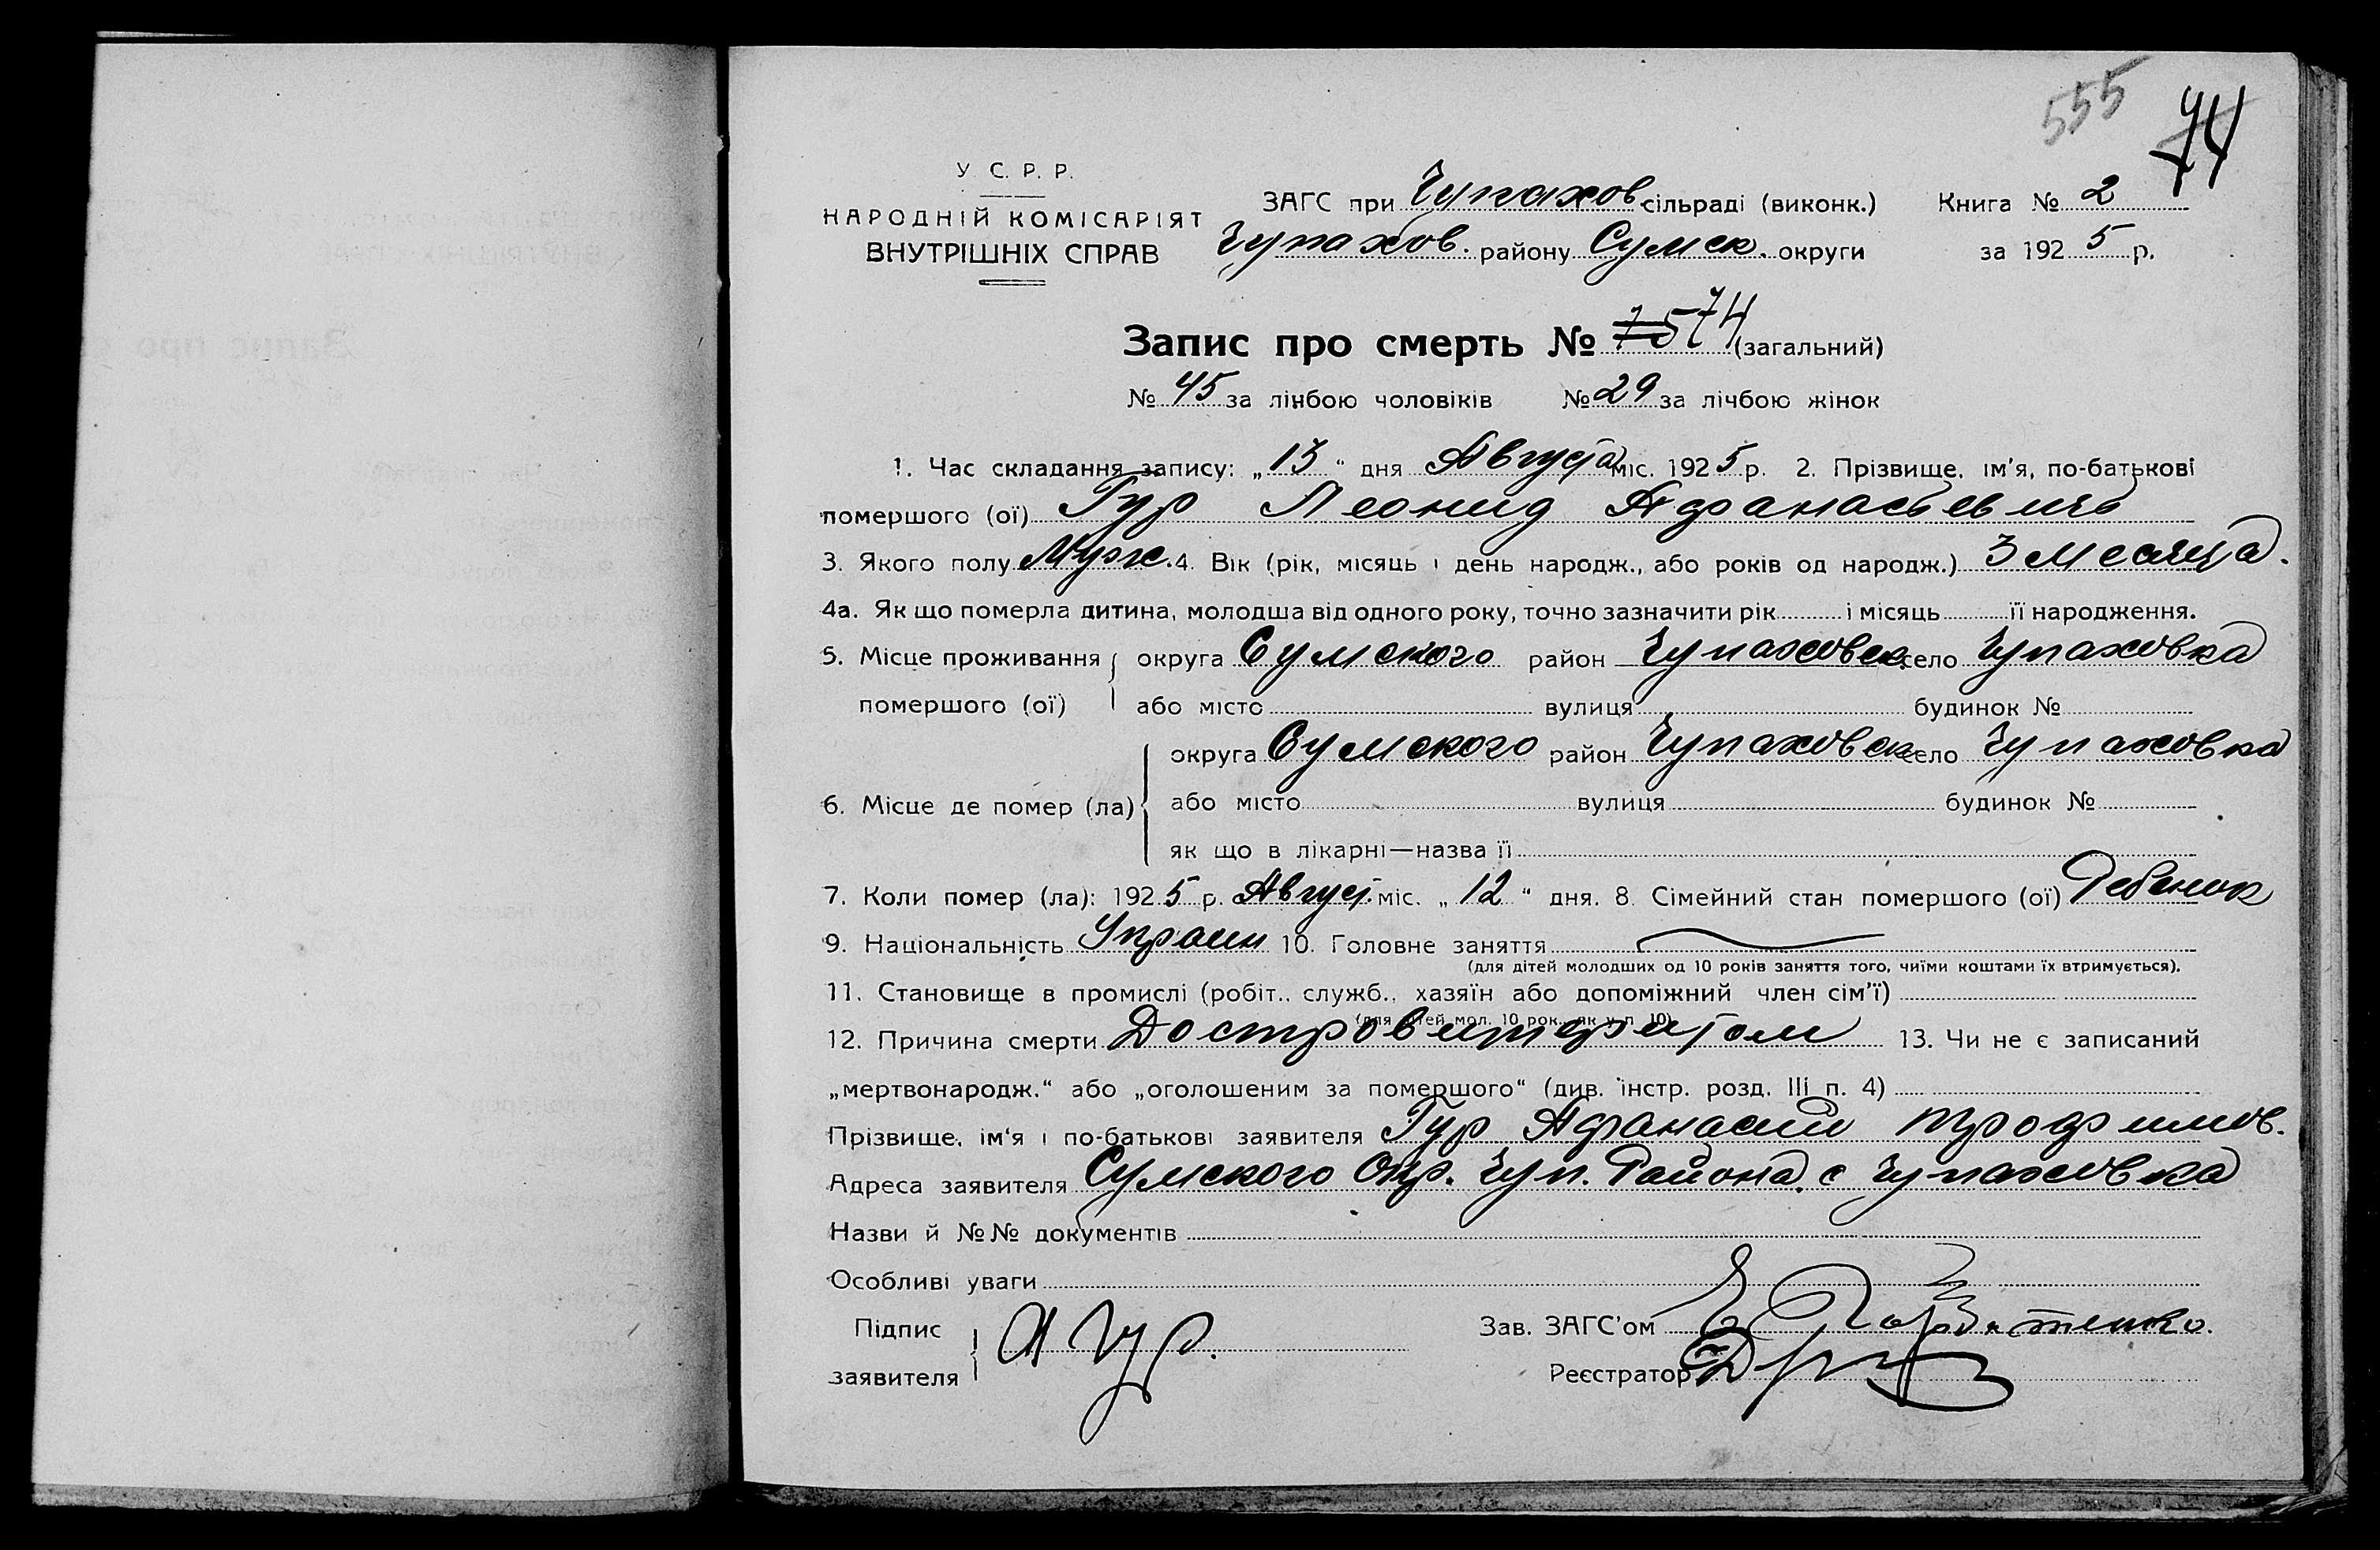 555 74
У. С. Р. Р.
НАРОДНІЙ КОМІСАРІЯТ
ВНУТРІШНІХ СПРАВ
ЗАГС при Чупахов сільраді (виконк.) Книга № 2
Чупахов. району Сумск. округи за 1925 р.
Запис про смерть № 74 (загальний)
№ 45 за лінбою чоловіків № 29 за лічбою жінок
1. Час складання запису: „13“ дня Августа міс. 1925 р. 2. Прізвище, ім'я, по-батькові
помершого (ої) Гур Леонид Афанасьевичь
3. Якого полу Муж. 4. Вік (рік, місяць і день народж., або років од народж.) 3 месяца.
4а. Як що померла дитина, молодша від одного року, точно зазначити рік і місяць її народження.
5. Місце проживання округа Сумского район Чупаховск. село Чупаховка
помершого (ої) або місто вулиця будинок №
округа Сумского район Чупаховск село Чупаховка
6. Місце де помер (ла) або місто вулиця будинок №
як що в лікарні—назва її
7. Коли помер (ла): 1925 р. Август. міс. „12“ дня. 8. Сімейний стан помершого (ої) Ребенок
9. Національність Украин 10. Головне заняття
(для дітей молодших од 10 років заняття того, чиїми коштами їх втримується).
11. Становище в промислі (робіт., служб., хазяїн або допоміжний член сім'ї)
(для дітей мол. 10 рок., як у п. 10)
12. Причина смерти 13. Чи не є записаний
„мертвонародж.“ або „оголошеним за помершого“ (див. інстр. розд. III п. 4)
Прізвище, ім'я і по-батькові заявителя Гур Афанасий Трофимов.
Адреса заявителя Сумского Окр. Чуп. Района, с Чупаховка
Назви й №№ документів
Особливі уваги
Підпис
заявителя А Гур.
Зав. ЗАГС'ом
Реєстратор